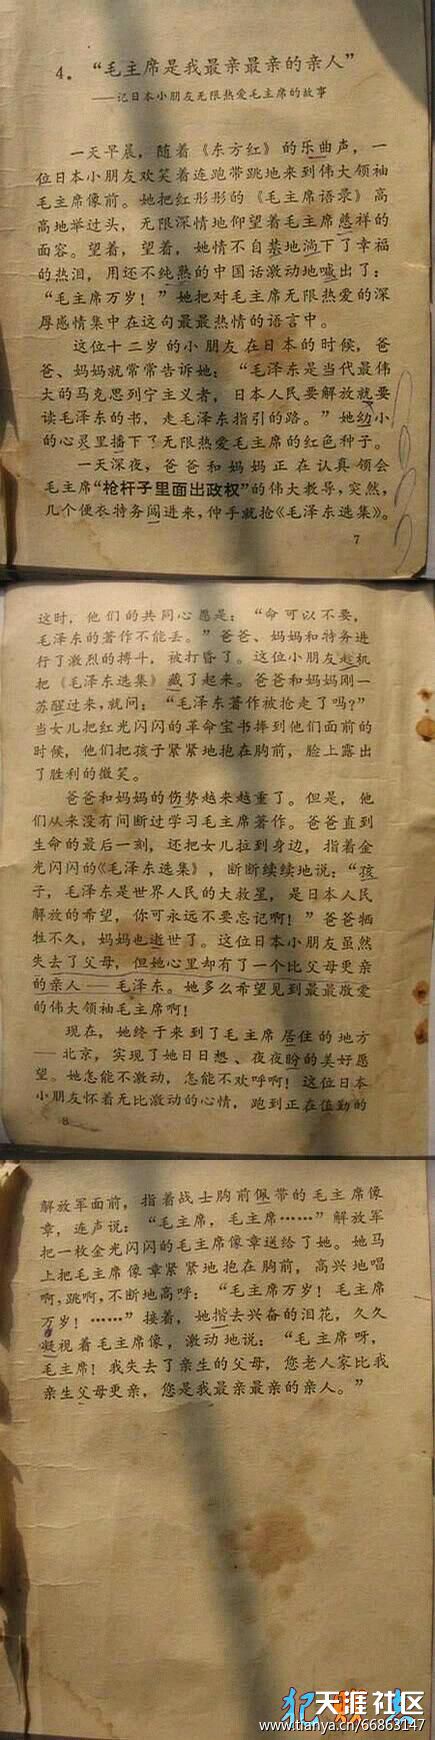 4．“毛主席是我最亲最亲的亲人”
——记日本小朋友无限热爱毛主席的故事
一天早晨，随着《东方红》的乐曲声，一
位日本小朋友欢笑着连跑带跳地来到伟大领袖
毛主席像前。她把红彤彤的《毛主席语录》高
高地举过头，无限深情地仰望着毛主席慈祥的
面容。望着，望着，她情不自禁地淌下了幸福
的热泪，用还不纯熟的中国话激动地喊出了：
“毛主席万岁！”她把对毛主席无限热爱的深
厚感情集中在这句最最热情的语言中。
这位十二岁的小朋友在日本的时候，爸
爸、妈妈就常常告诉她：“毛主席是当代最伟
大的马克思列宁主义者，日本人民要解放就要
读毛泽东的书，走毛泽东指引的路。”她幼小
的心灵里播下了无限热爱毛主席的红色种子。
一天深夜，爸爸和妈妈正在认真领会
毛主席“枪杆子里面出政权”的伟大教导，突然，
几个便衣特务闯进来，伸手就抢《毛泽东选集》。
7
这时，他们的共同心愿是：“命可以不要，
毛泽东的著作不能丢。”爸爸、妈妈和特务进
行了激烈的搏斗，被打昏了。这位小朋友趁机
把《毛泽东选集》藏了起来。爸爸和妈妈刚一
苏醒过来，就问：“毛泽东著作被抢走了吗？”
当女儿把红光闪闪的革命宝书捧到他们面前的
时候，他们把孩子紧紧地抱在胸前，脸上露出
了胜利的微笑。
爸爸和妈妈的伤势越来越重了。但是，他
们从来没有间断过学习毛主席著作。爸爸直到
生命的最后一刻，还把女儿拉到身边，指着金
光闪闪的《毛泽东选集》，断断续续地说：“孩
子，毛泽东是世界人民的大救星，是日本人民
解放的希望，你可永远不要忘记啊！”爸爸牺
牲不久，妈妈也逝世了。这位日本小朋友虽然
失去了父母，但她心里却有了一个比父母更亲
的亲人——毛泽东。她多么希望见到最最敬爱
的伟大领袖毛主席啊！
现在，她终于来到了毛主席居住的地方
——北京，实现了她日日想、夜夜盼的美好愿
望。她怎能不激动，怎能不欢呼啊！这位日本
小朋友怀着无比激动的心情，跑到正在值勤的
8
解放军面前，指着战士胸前佩带的毛主席像
章，连声说：“毛主席，毛主席……”解放军
把一枚金光闪闪的毛主席像章送给了她。她马
上把毛主席像章紧紧地抱在胸前，高兴地唱
啊，跳啊，不断地高呼：“毛主席万岁！毛主席
万岁！……”接着，她揩去兴奋的泪花，久久
凝视着毛主席像，激动地说：“毛主席呀，
毛主席！我失去了亲生的父母，您老人家比我
亲生父母更亲，您是我最亲最亲的亲人。”
天涯社区
www.tianya.cn/66863147